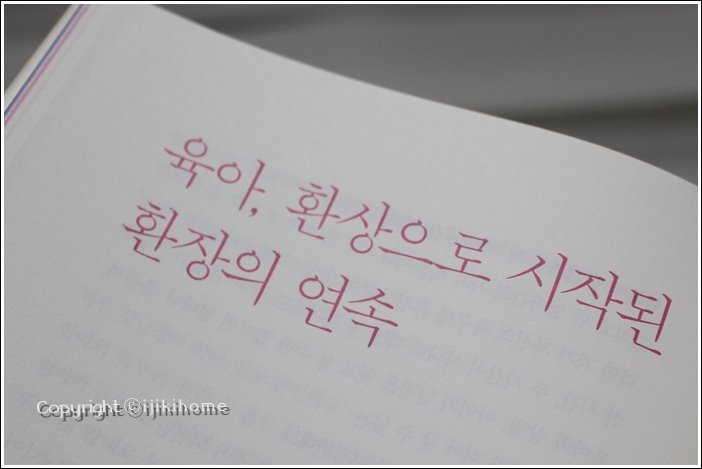 육아, 환상으로 시작된
환장의 연속
Copyright ⓒijikihome